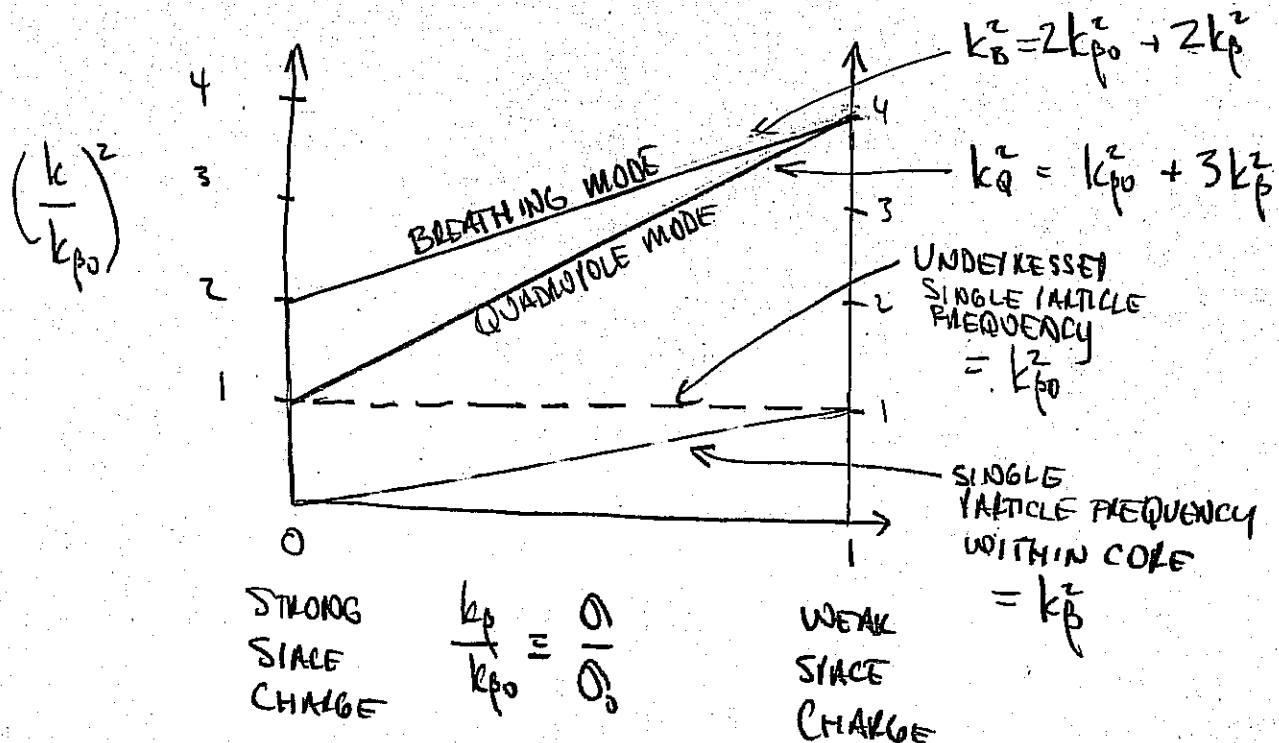 k_B^2 = 2k_{β0}^2 + 2k_β^2
4
4
(k/k_{β0})^2
k_Q^2 = k_{β0}^2 + 3k_β^2
3
BREATHING MODE
3
QUADRUPOLE MODE
UNDEPRESSED
SINGLE PARTICLE
FREQUENCY
= k_{β0}^2
2
2
1
1
SINGLE
PARTICLE FREQUENCY
WITHIN CORE
= k_β^2
0
1
STRONG
SPACE
CHARGE
k_β/k_{β0} ≡ σ/σ_0
WEAK
SPACE
CHARGE